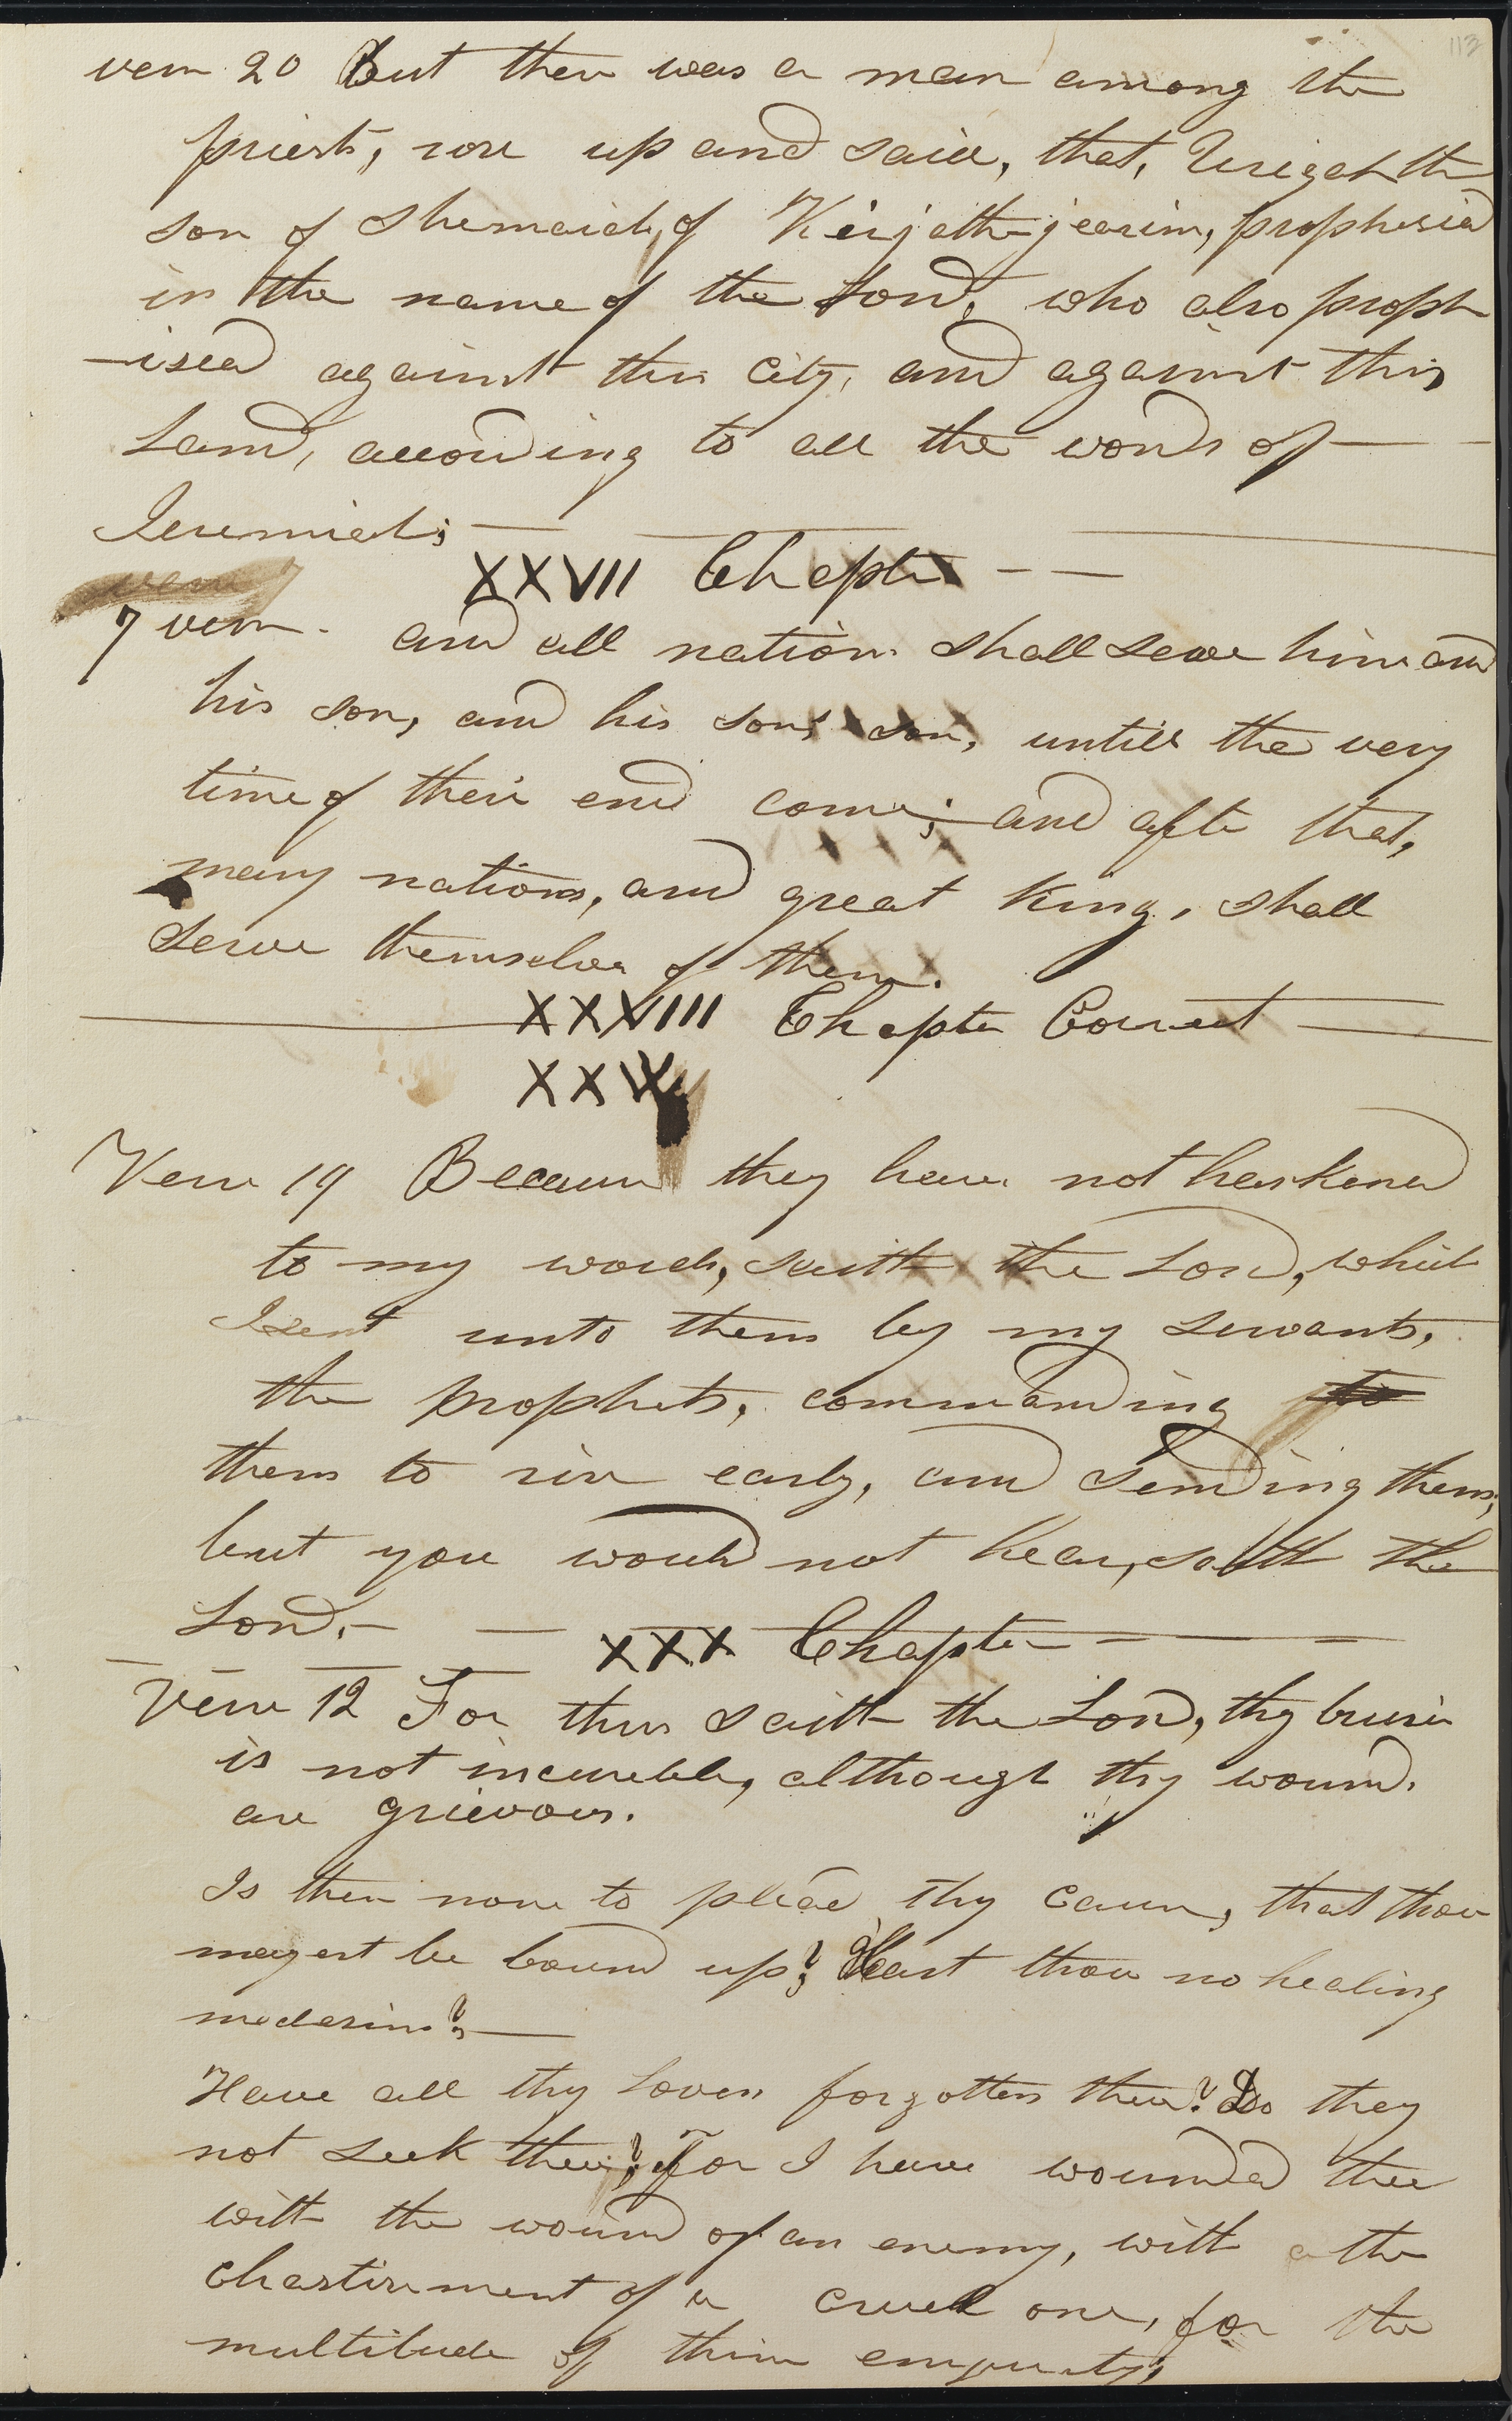 113
vers 20 But there was a man among the
priests, rose up and said, that, Urigah the
son of Shemaiah, of Kirjath-jearim, prophesied
in the name of the Lord, who also proph
-isied against this city, and against this
Land, according to all the words of —
Jeremiah; —
XXVII Chapter — —
7 vers. and all nations shall serve him and
his son, and his sons son, untill the very
time of their end come; and after that,
many nations, and great kings, shall
serve themselves of them.
XXXVIII Chapter Correct —
XXIX
Verse 19 Because they have not harkened
to my words, saith the Lord, which
I sent unto them by my servants,
the prophets, commanding to
them to rise early, and sending them;
but you would not hear, saith the
Lord. — —
XXX Chapter — — —
Verse 12 For thus saith the Lord, thy bruise
is not incureble, although thy wounds
are grievous.
Is there none to plead thy cause, that thou
mayest be bound up? Hast thou no healing
medesins? —
Have all thy lovers forgotten thee? Do they
not seek thee? For I have wounded thee
with the wound of an enemy, with a the
chastisement of a cruel one, for the
multitude of thine eniquitys,